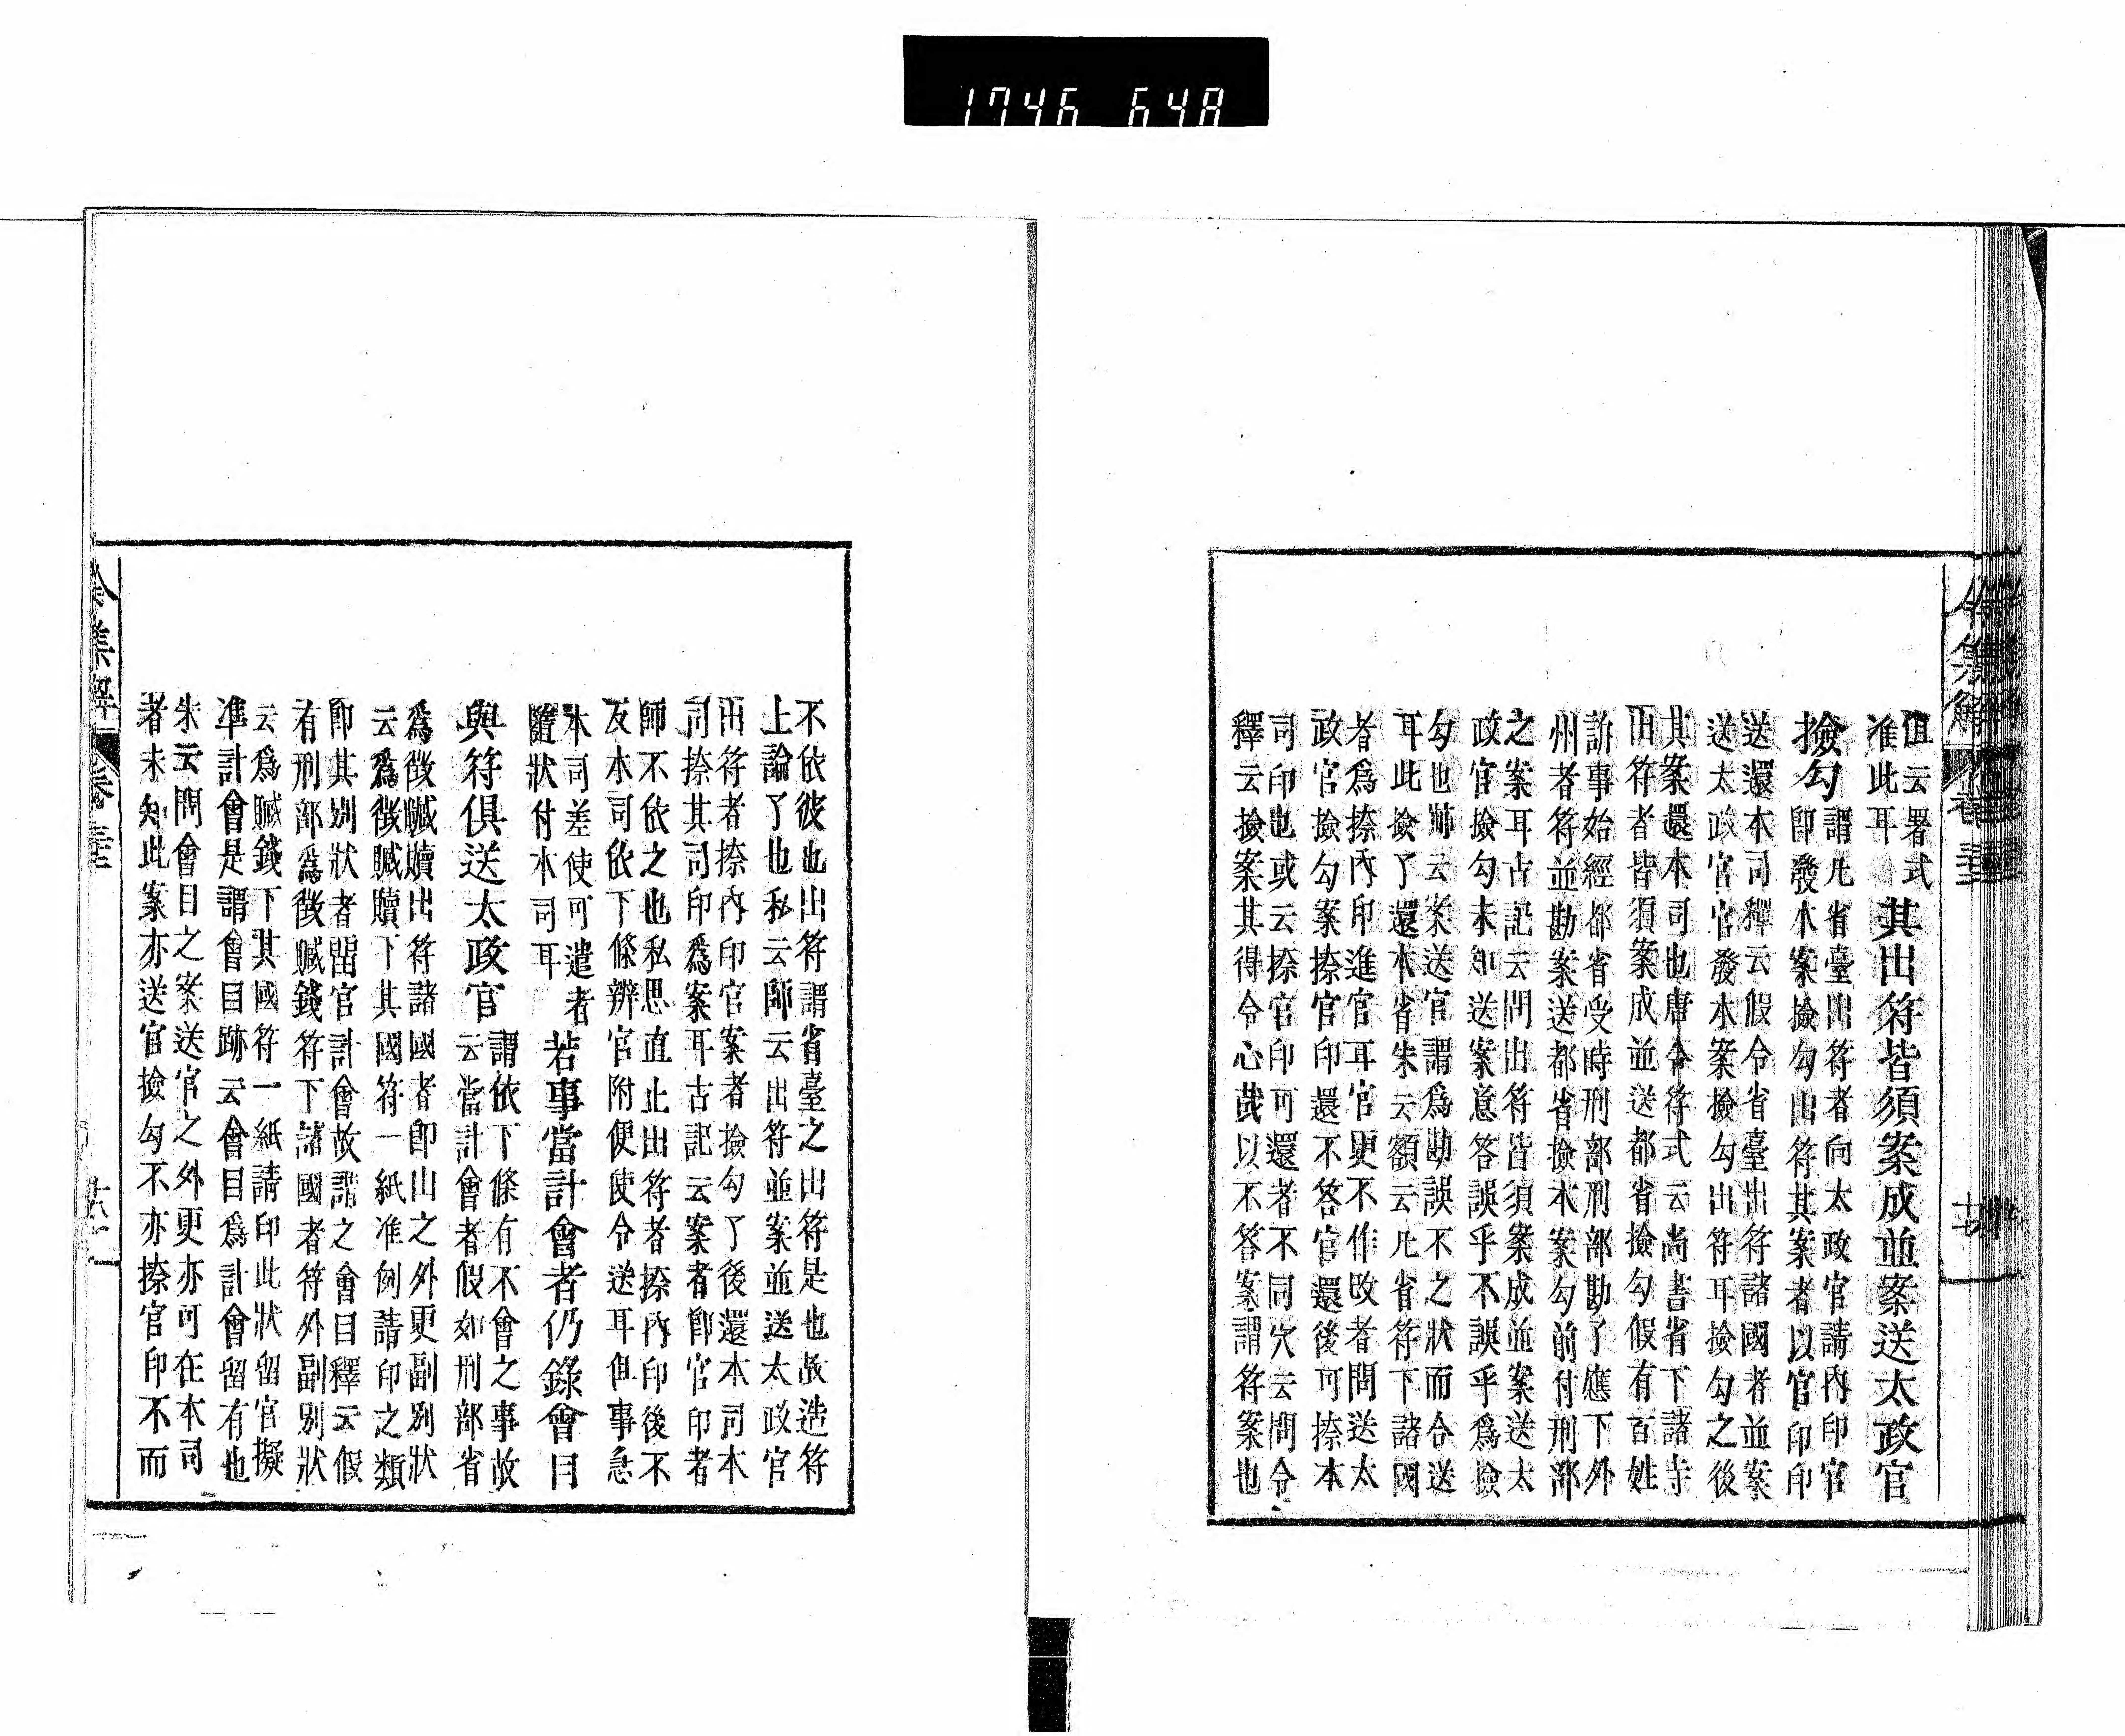 1746 648
令集解 卷三十二
但云署式
准此耳
其出符皆須案成並案送太政官
撿勾
謂凡省臺出符者向太政官請內印官
卽發本案撿勾出符其案者以官印印
送還本司釋云假令省臺出符諸國者並案
送太政官官發本案撿勾出符耳撿勾之後
其案還本司也唐令符式云尚書省下諸寺
出符者皆須案成並送都省撿勾假有百姓
訴事始經都省受時刑部刑部勘了應下外
州者符並勘案送都省撿本案勾前付刑部
之案耳古記云問出符皆須案成並案送太
政官撿勾未知送案意答誤乎不誤乎爲撿
勾也師云案送官謂爲勘誤不之狀而令送
耳此撿了還本省朱云額云凡省符下諸國
者爲捺內印進官耳官更不作改者問送太
政官撿勾案捺官印還不答官還後可捺本
司印也或云捺官印可還者不同穴云問令
釋云撿案其得令心哉以不答案謂符案也
不依彼也出符謂省臺之出符是也故造符
上論了也私云師云出符並案並送太政官
出符者捺內印官案者撿勾了後還本司本
司捺其司印爲案耳古記云案者卽官印者
師不依之也私思直止出符者捺內印後不
及本司依下條辨官附便使令送耳但事急
本司差使可遣者
隨狀付本司耳
若事當計會者仍錄會目
與符俱送太政官
謂依下條有不會之事故
云當計會者假如刑部省
爲徵贓贖出符諸國者卽出之外更副別狀
云爲徵贓贖下其國符一紙准例請印之類
卽其別狀者留官計會故謂之會目釋云假
有刑部爲徵贓錢符下諸國者符外副別狀
云爲贓錢下其國符一紙請印此狀留官擬
準計會是謂會目跡云會目爲計會留有也
朱云問會目之案送官之外更亦可在本司
者未知此案亦送官撿勾不亦捺官印不而
令集解 卷三十二